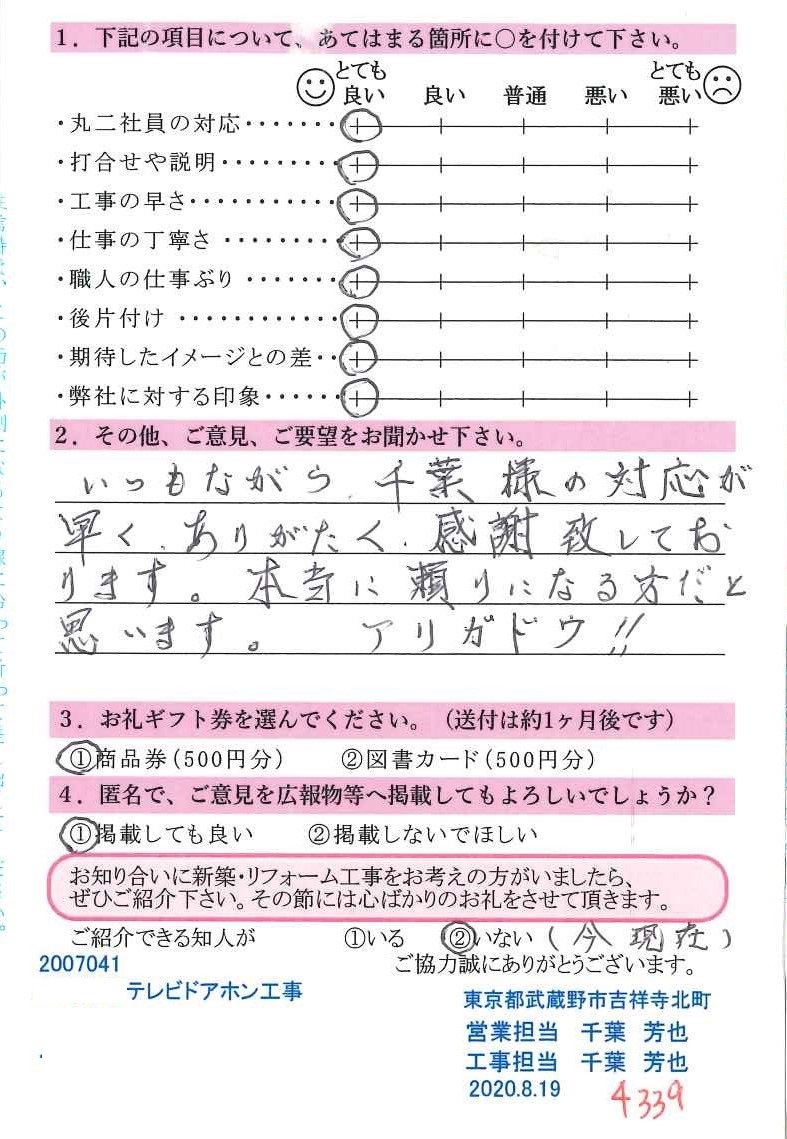 1．下記の項目について、あてはまる箇所に○を付けて下さい。
とても良い 良い 普通 悪い とても悪い
・丸二社員の対応・・・・・・・
・打合せや説明・・・・・・・・・
・工事の早さ・・・・・・・・・・・
・仕事の丁寧さ ・・・・・・・・
・職人の仕事ぶり ・・・・・・・
・後片付け ・・・・・・・・・・・・
・期待したイメージとの差・・
・弊社に対する印象・・・・・・
2．その他、ご意見、ご要望をお聞かせ下さい。
いつもながら、千葉様の対応が
早く、ありがたく、感謝致してお
ります。本当に頼りになる方だと
思います。 アリガドウ!!
3．お礼ギフト券を選んでください。（送付は約1ヶ月後です）
①商品券（500円分） ②図書カード（500円分）
4．匿名で、ご意見を広報物等へ掲載してもよろしいでしょうか？
①掲載しても良い ②掲載しないでほしい
お知り合いに新築・リフォーム工事をお考えの方がいましたら、
ぜひご紹介下さい。その節には心ばかりのお礼をさせて頂きます。
ご紹介できる知人が ①いる ②いない（今現在）
2007041 ご協力誠にありがとうございます。
テレビドアホン工事
東京都武蔵野市吉祥寺北町
営業担当 千葉 芳也
工事担当 千葉 芳也
2020.8.19
4339